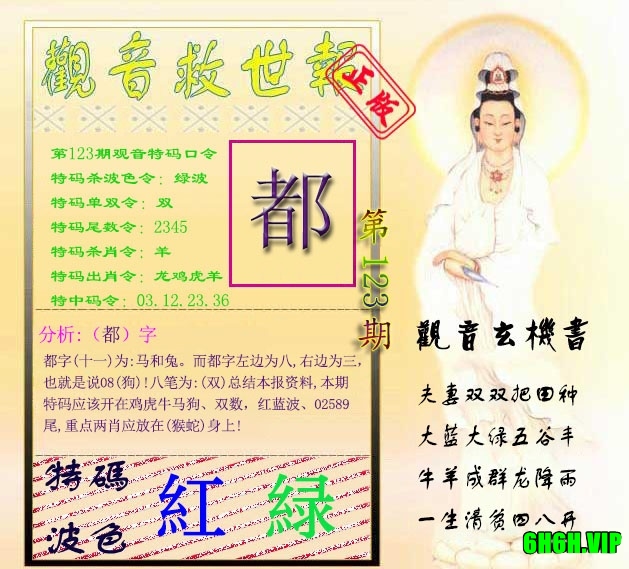 觀音救世報
正版
第123期观音特码口令
特码杀波色令：绿波
特码单双令：双
特码尾数令：2345
特码杀肖令：羊
特码出肖令：龙鸡虎羊
特中码令：03.12.23.36
都
第123期
分析:（都）字
都字(十一)为:马和兔。而都字左边为八,右边为三，
也就是说08(狗)!八笔为:(双)总结本报资料,本期
特码应该开在鸡虎牛马狗、双数，红蓝波、02589
尾,重点两肖应放在(猴蛇)身上!
特碼
波色
紅 緑
觀音玄機書
夫妻双双把田种
大蓝大绿五谷丰
牛羊成群龙降雨
一生清贫四八开
6H6H.VIP